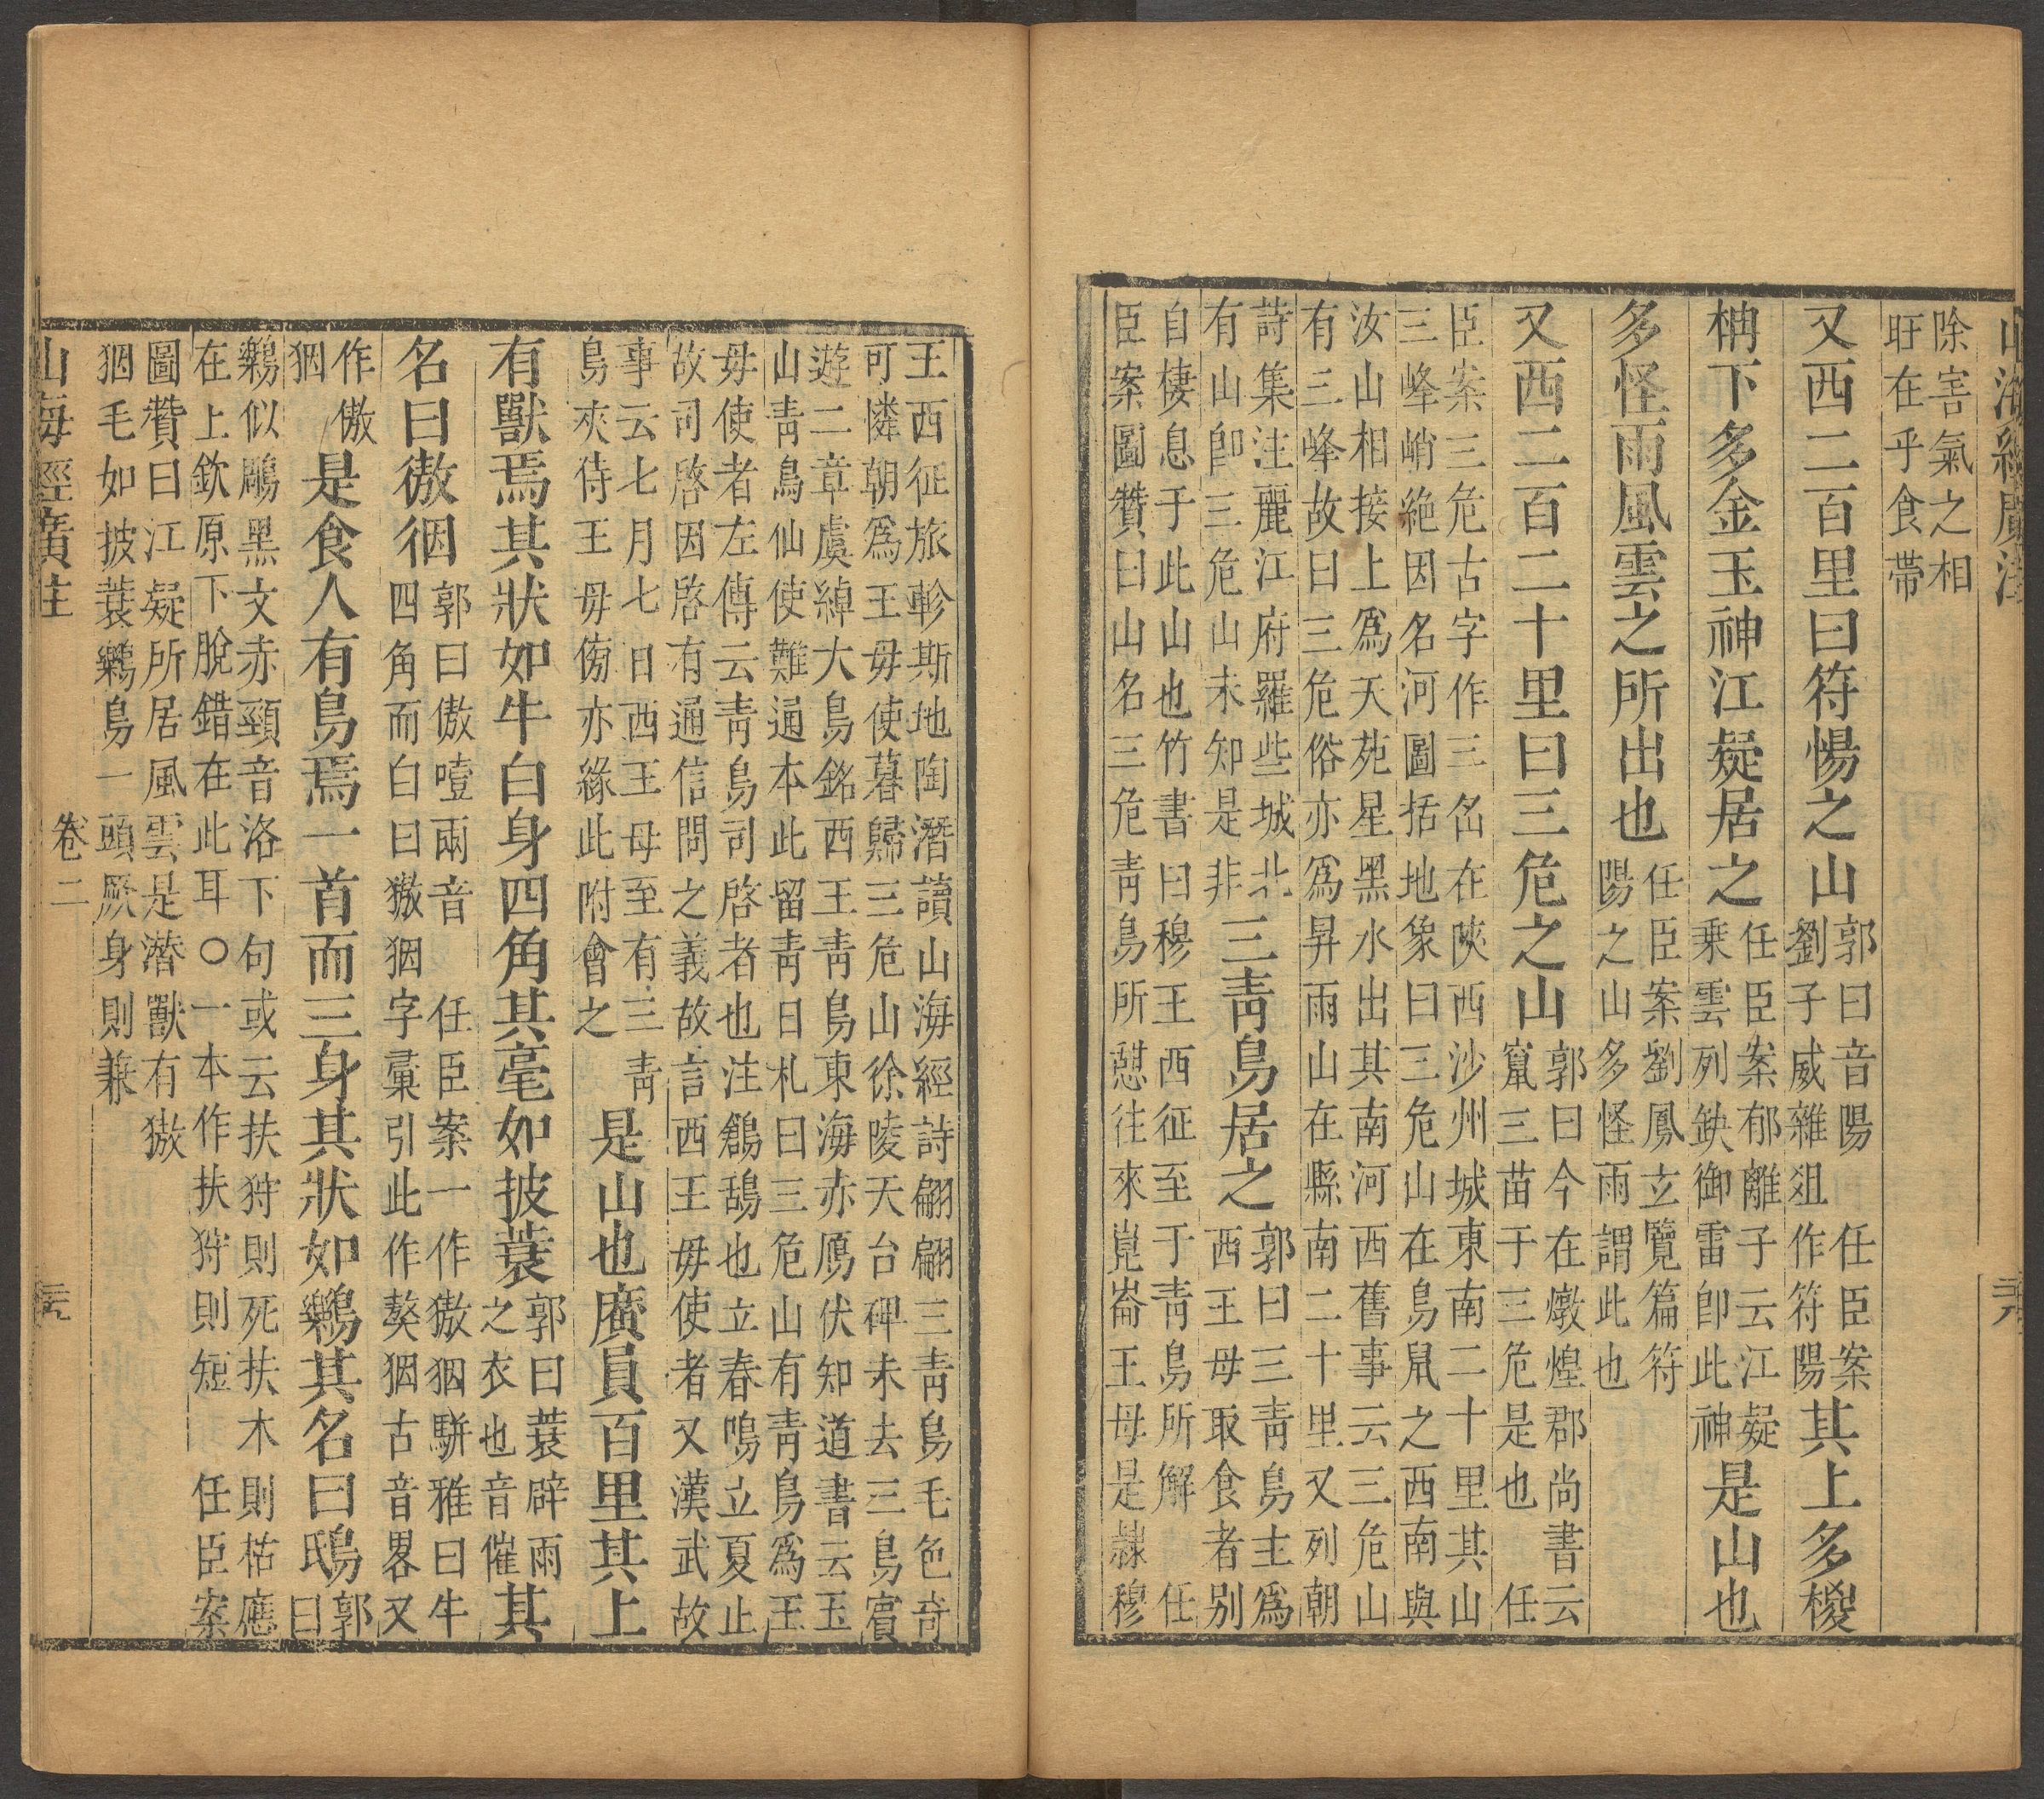 山海經廣注
除害氣之相
旺在乎食帶
又西二百里曰符惕之山郭曰音陽 任臣案
劉子威雜俎作符陽其上多椶
枏下多金玉神江疑居之任臣案郁離子云江疑
乗雲列缺御雷卽此神是山也
多怪雨風雲之所出也任臣案劉鳳立覽篇符
陽之山多怪雨謂此也
又西二百二十里曰三危之山郭曰今在燉煌郡尚書云
竄三苗于三危是也 任
臣案三危古字作三𡵆在陝西沙州城東南二十里其山
三峰峭絶因名河圖括地象曰三危山在鳥鼠之西南與
汝山相接上爲天苑星黑水出其南河西舊事云三危山
有三峰故曰三危俗亦爲昇雨山在縣南二十里又列朝
詩集注麗江府羅些城北
有山卽三危山未知是非三靑鳥居之郭曰三靑鳥主爲
西王母取食者别
自棲息于此山也竹書曰穆王西征至于靑鳥所解 任
臣案圖贊曰山名三危靑鳥所憇往來崑崙王母是隷穆
王西征旅軫斯地陶潛讀山海經詩翩翩三靑鳥毛色竒
可憐朝爲王毋使暮歸三危山徐陵天台碑未去三鳥賔
遊二章虞綽大鳥銘西王靑鳥東海亦鴈伏知道書云玉
山靑鳥仙使難通本此留靑日札曰三危山有靑鳥爲王
毋使者左傳云靑鳥司啓者也注鶬鴰也立春鳴立夏止
故司啓因啓有通信問之義故言西王毋使者又漢武故
事云七月七日西王母至有三靑
鳥夾侍王毋㑄亦緣此附會之是山也廣員百里其上
有獸焉其狀如牛白身四角其毫如披蓑郭曰蓑辟雨
之衣也音催其
名曰獓𢓲郭曰傲噎兩音 任臣案一作獓㹶駢雅曰牛
四角而白曰獓㹶字彙引此作獒㹶古音畧又
作傲
㹶是食人有鳥焉一首而三身其狀如鸈其名曰鴟郭
曰
鸈似鵰黑文赤頸音洛下句或云扶狩則死扶木則枯應
在上欽原下脫錯在此耳○一本作扶狩則短 任臣案
圖贊曰江疑所居風雲是潛獸有獓
㹶毛如披蓑鸈鳥一頭厥身則兼
山海經廣注
卷二